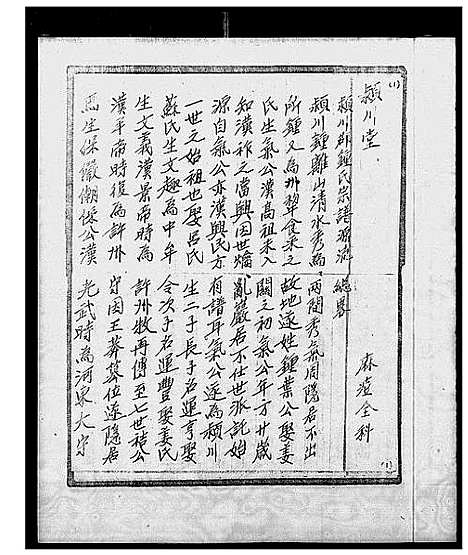 (1)
潁川堂　麻澄全科
潁川郡鍾氏宗譜源流　總畧
潁川鍾離山清水秀為兩間秀氣周隱居不出
所鍾又為州犂食采之故地遂姓鍾葉公娶姜
氏生氣公漢高祖未入關之初氣公年方廿歲
知漢祚之當興因世煽亂嚴居不仕世派託始
源自氣公亦漢興民方有譜耳氣公遂為潁川
一世之始祖也娶呂氏生二子長子名運亨娶
蘇氏生文趣為中牟令次子名運豐娶姜氏
生文義漢景帝時為許州牧再傳至七世禧公
漢平帝時復為許州守因王莽篡位遂隱居
馬生保儼潮保公漢光武時為河東大守
(1)